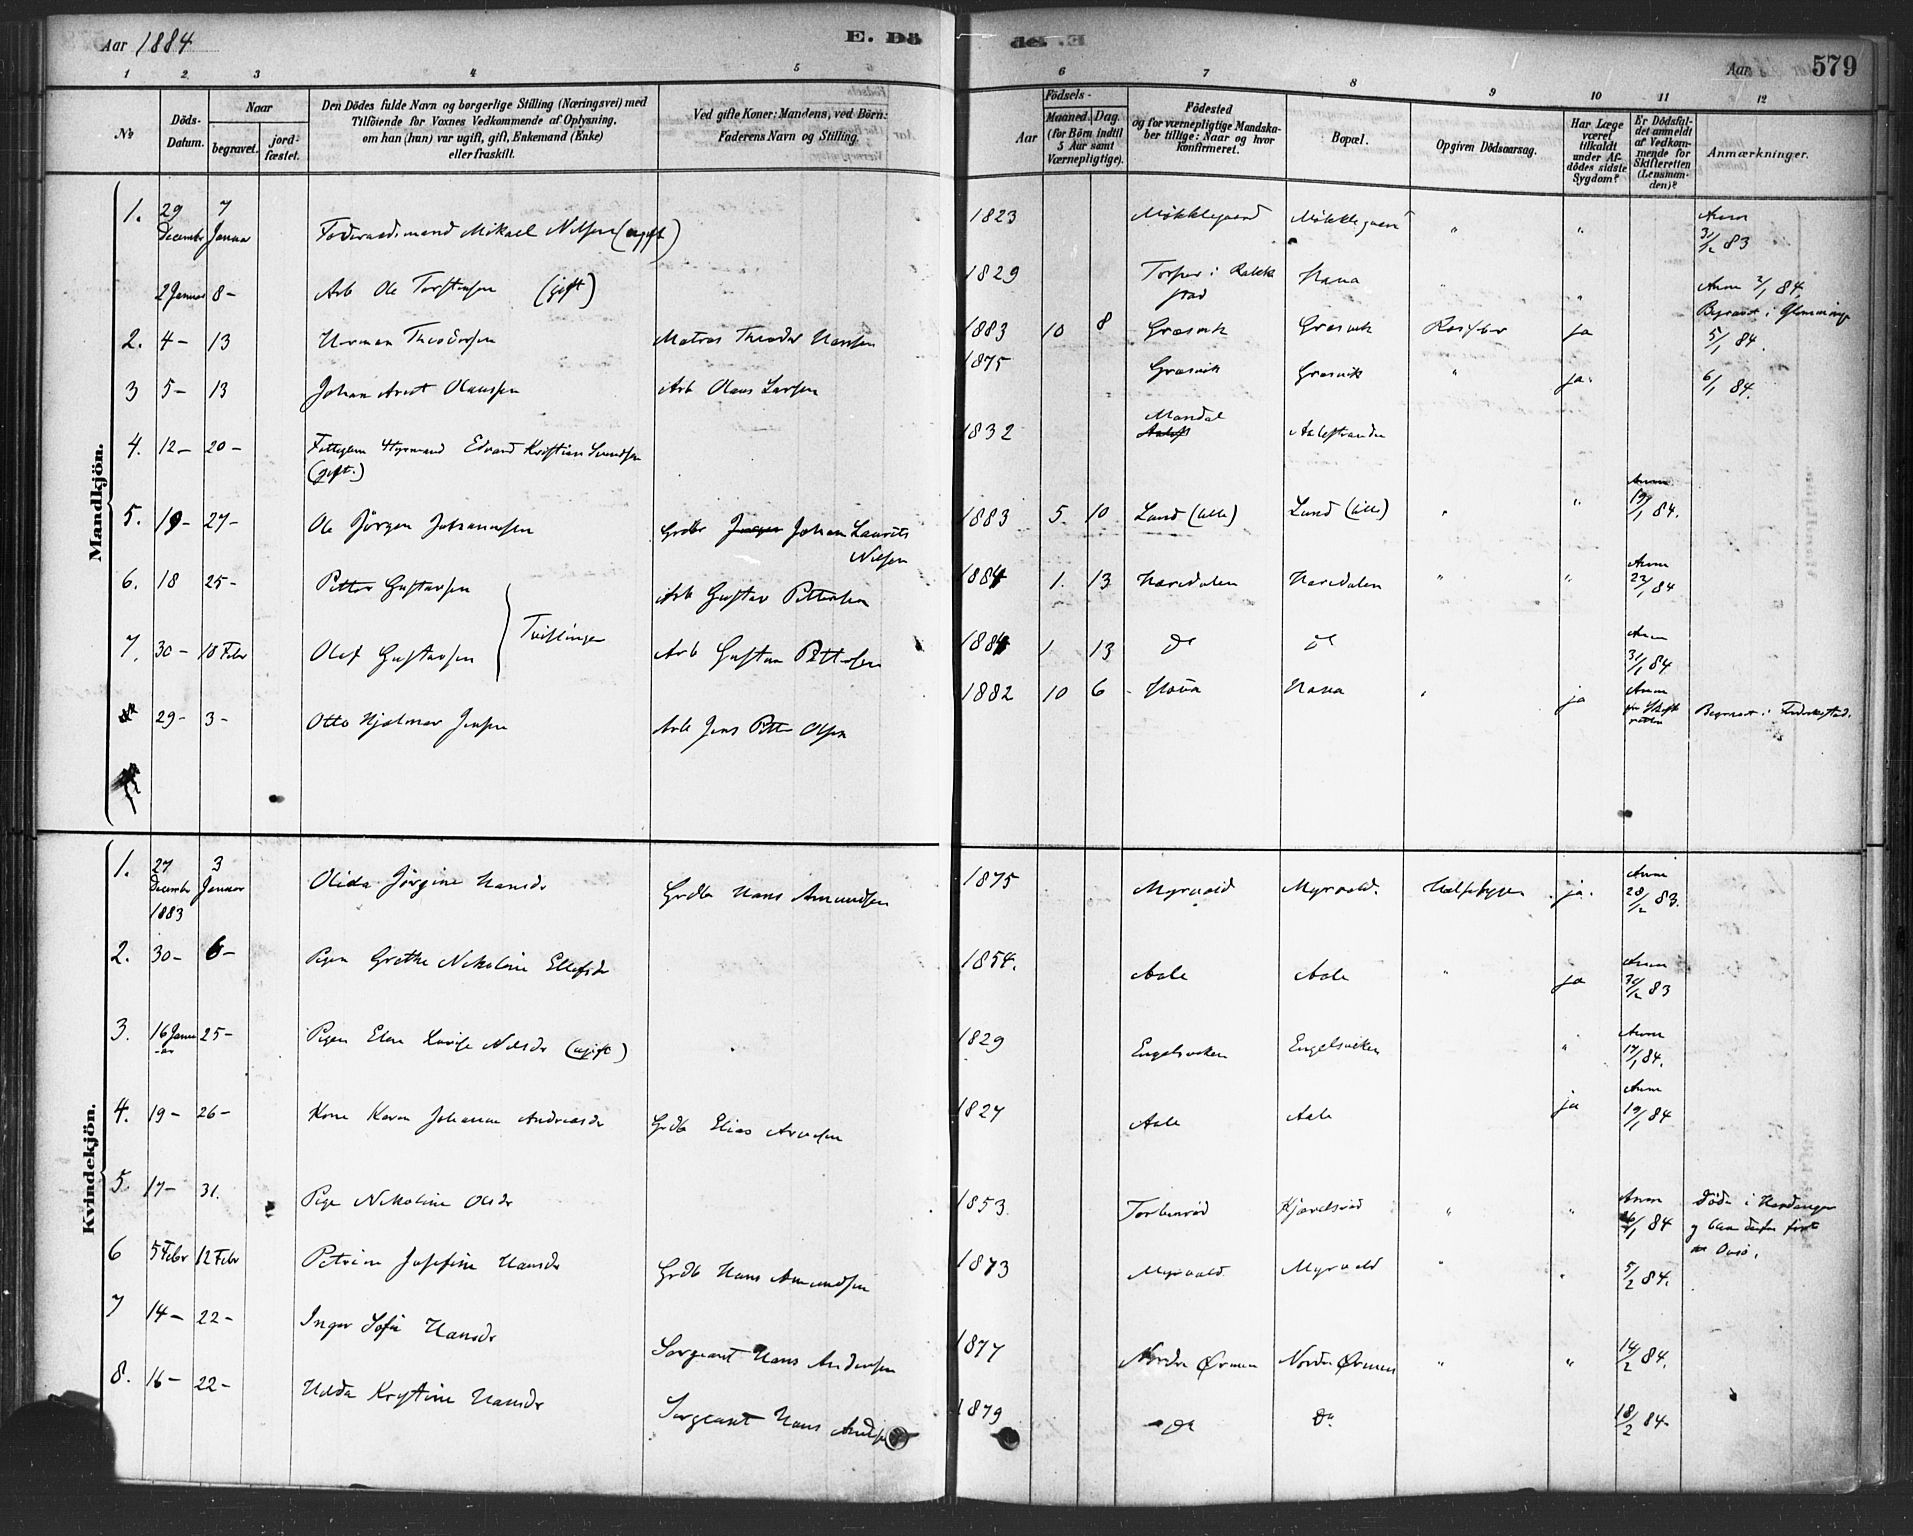 Aar 1884 E. Dö
del. E Aar 579
1 2. 3 4 5 6 7 8 9 10 11 12
No Döds-Datum. Naar begravet. jordfæstet. Den Dödes fulde Navn og borgerlige Stilling (Næringsvei) med Tilföiende for Voxnes Vedkommende af Oplysning, om han (hun) var ugift, gift, Enkemand (Enke) eller fraskilt. Ved gifte Koner: Mandens, ved Börn: Faderens Navn og Stilling.
Aar Födsels- Maaned. Dag. (for Börn indtil 5 Aar samt Værnepligtige). Födested og for værnepligtige Mandskaber tillige: Naar og hvor konfirmeret. Bopæl. Opgiven Dödsaarsag. Har Læge været tilkaldt under Afdödes sidste Sygdom? Er Dödsfaldet anmeldt af Vedkommende for Skifteretten (Lensmanden)? Anmærkninger.
Mandkjön.
1. 29 Decembr 7 Januar Föderaadsmand Mikael Nilsen (ugift) 1823 Møklegaard Møklegaard " " Anm 31/12 83
2 Januar 8 - Arb Ole Torstensen (gift) 1829 Torper i Rakkestad Hana " " Anm 3/1 84,
2. 4 - 13 Herman Theodorsen Matros Theodor Hansen 1883 10 8 Græsvik Græsvik ja Begravet i Glemminge 5/1 84.
3 5 - 13 Johan Arvt Olaussen Arb Olaus Larsen 1875 Græsvik Græsvik " ja. 6/1 84.
4. 12 - 20 - Edvard Kristian Svendsen (gift.) 1832 Mandal Aalestranden
5. 19 - 27 - Ole Jörgen Johannesen Grdbr Jörgen Johan Laurits Nilsen 1883 5. 10 Lund (lille) Lund (lille) " " Anm 19/1 84.
6. 18 25 - Petter Gustavsen Tvillinger Arb Gustav Pettersen 1884 1. 13 Haredalen Haredalen " " Anm 23/1 84
7. 30 - 18 Febr Olaf Gustavsen Arb Gustav Pettersen 1884 1 13 do do Anm 31/1 84
29 - 3 - Otto Hjalmar Jensen Arb Jens Petter Olsen 1882 10 6 Hana Hana " ja Anm for Skifteretten Begravet i Frederikstad.
Kvindekjön.
1. 27 Decembr 1883 3 Januar Olida Jörgine Hansdr Grdb Hans Amundsen 1875 Myrvold Myrvold. Halsebygen ja. Anm 28/12 83.
2. 30 - 6 - Pigen Grethe Nikoline Ellefsdr 1854. Aale Aale " ja Anm 30/12 83
3. 16 Januar 25 - Pigen Elen Lovise Nilsdr (ugift) 1829 Engelsviken Engelsviken " Anm 17/1 84.
4. 19 - 26 - Kone Karen Johanne Andreasdr Grdb Elias Arnesen 1827 Aale Aale ja Anm 19/1 84
5 17 - 31. Pige Nikoline Olsdr 1853 Torbinröd Kjærlsröd " " Anm 26/1 84 döde i Hardanger og blev derfor först Onsö.
6 5 Febr 12 Febr Petrine Josefine Hansdr Grdb Hans Amundsen 1873 Myrvold Myrvold " " 5/2 84.
7 14 - 22 - Inger Sofie Hansdr Sergeant Hans Andersen 1877 Nordre Ørmen Nordre Ørmen " " 14/2 84.
8. 16 - 22 - Hilda Krystine Hansdr Sergeant Hans 1879 do do 18/2 84